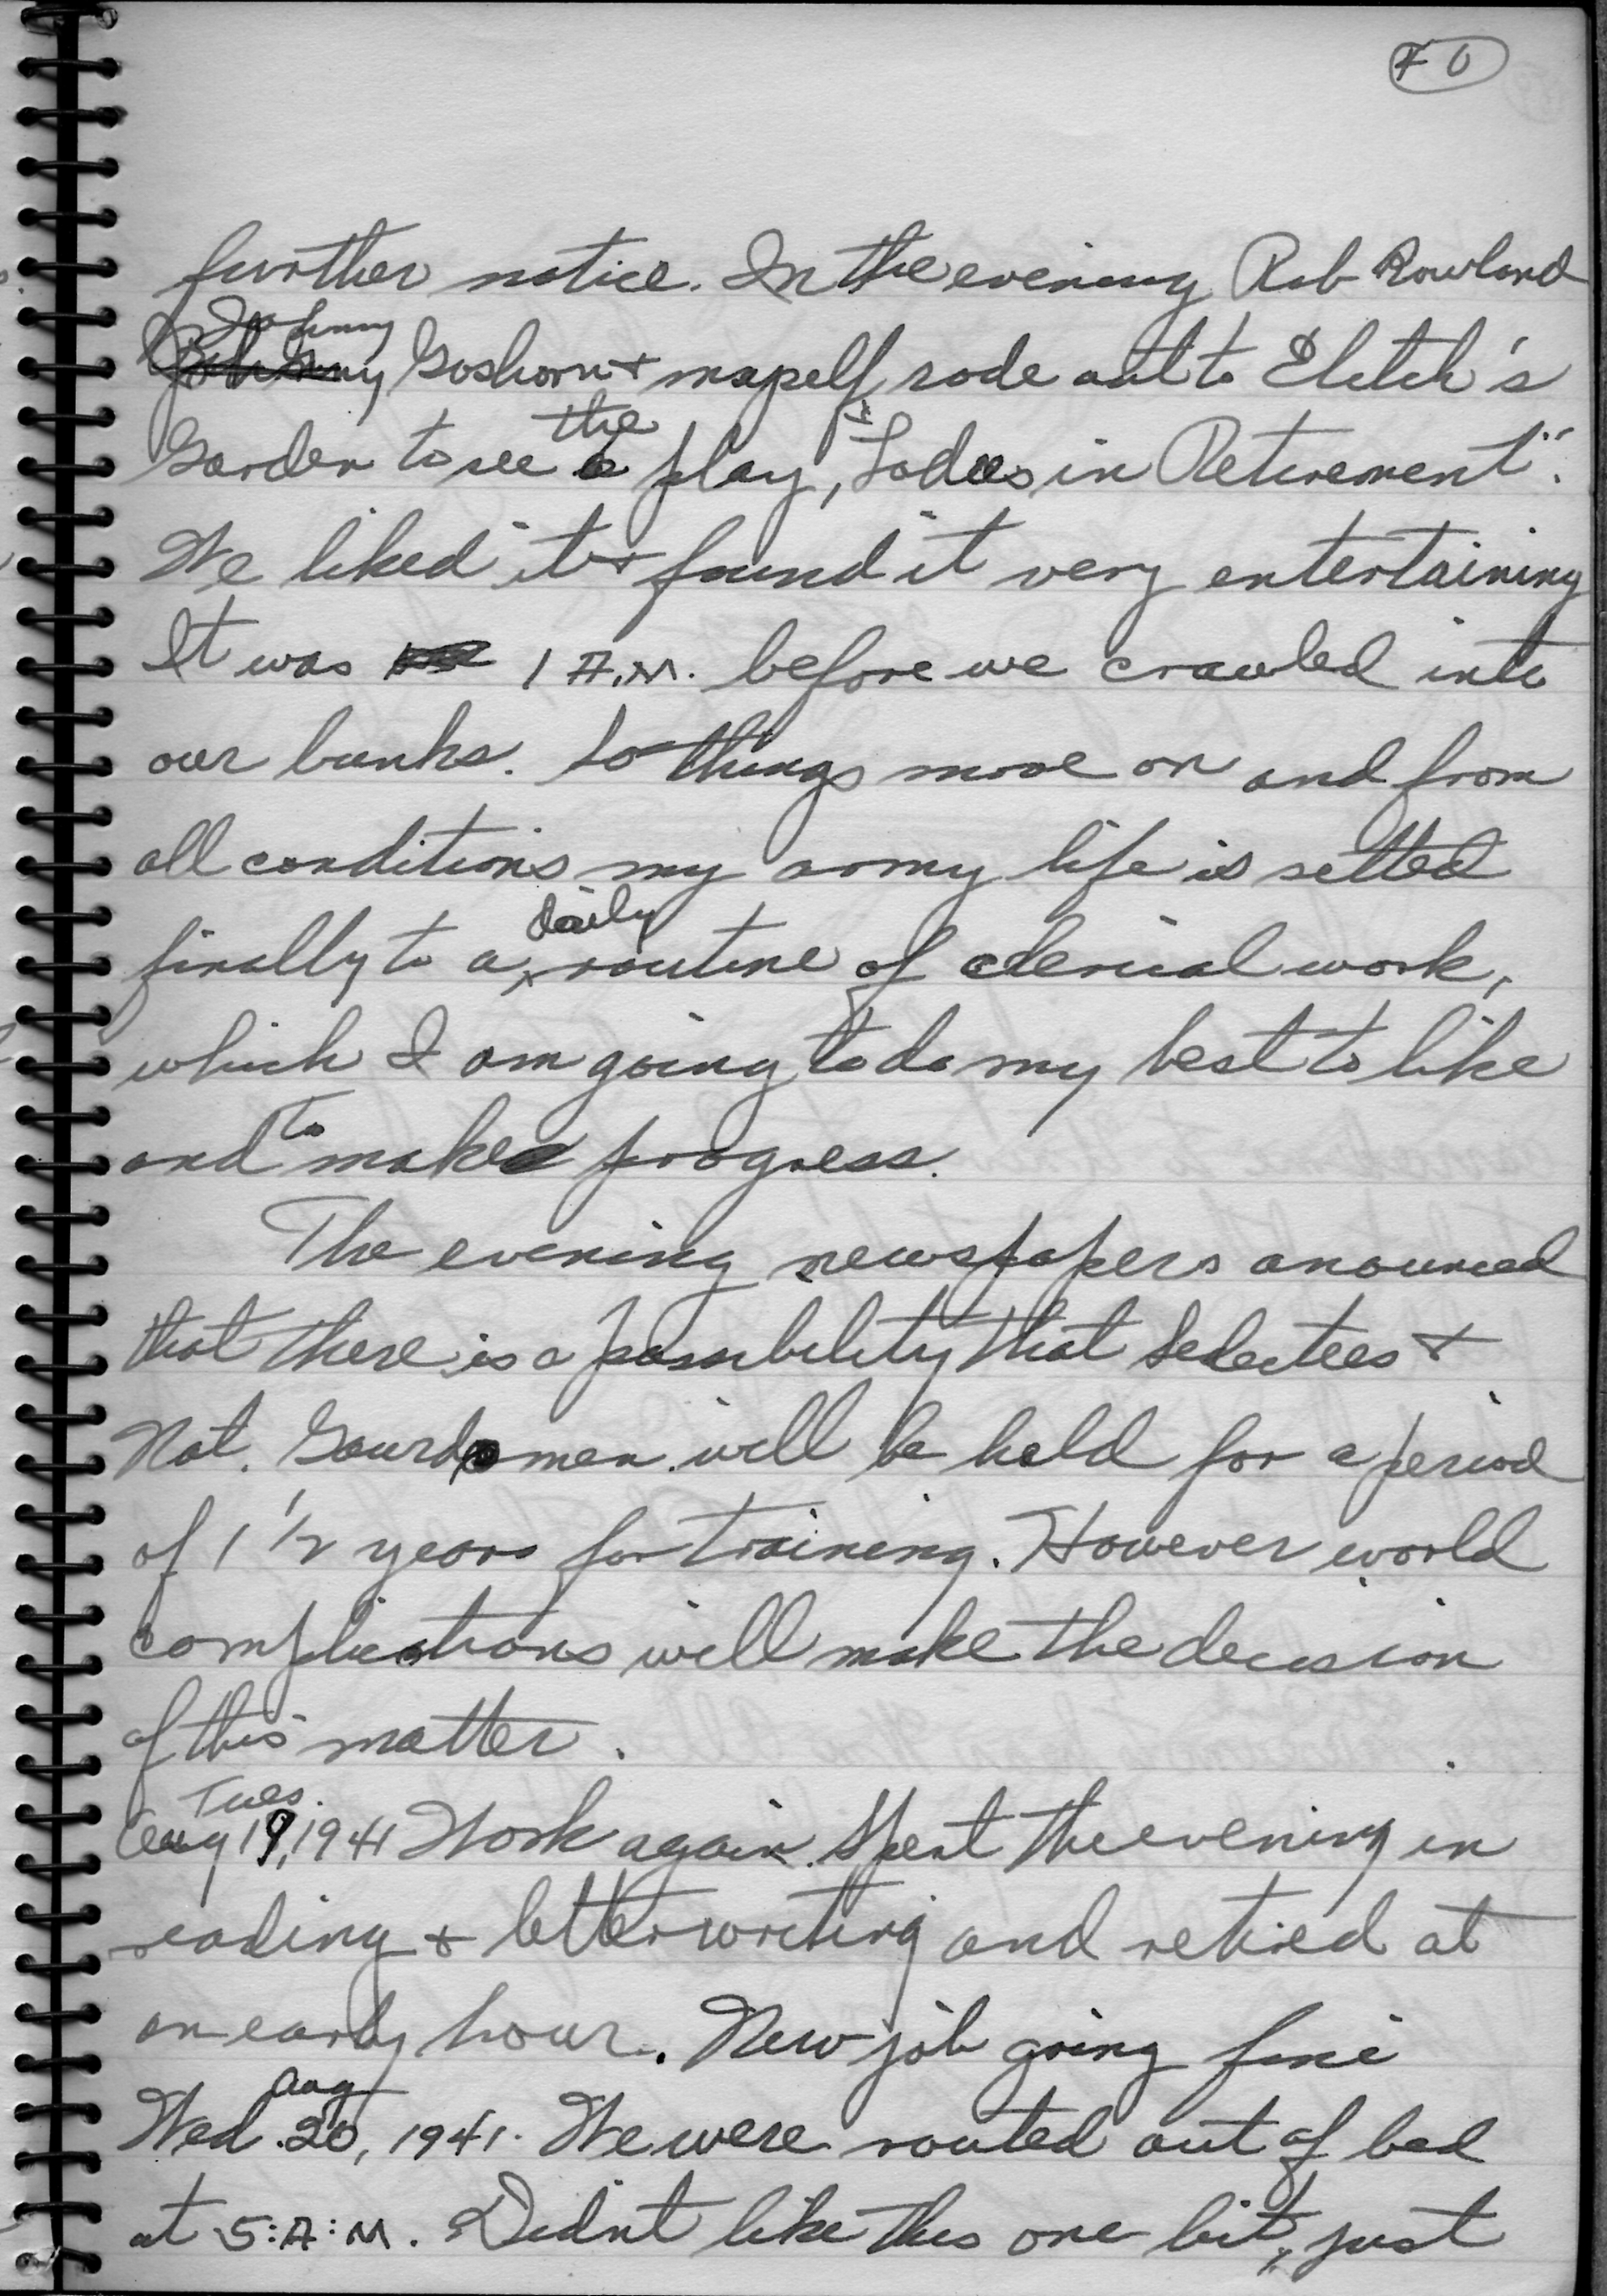 70
further notice. In the evening Rob Rowland
Johnny
Goshorn + myself rode out to Elitch's
the
Garden to see play, "Ladies in Retirement".
We liked it + found it very entertaining
It was 1 A.M. before we crawled into
our bunks. So things move on and from
all conditions my army life is setted
daily
finally to a routine of clerical work,
which I am going to do my best to like
to
and make progress.
The evening newspapers anounced
that there is a possibility that Selectees +
Nat. Guardsmen will be held for a period
of 1 1/2 years for training. However world
complications will make the decision
of this matter.
Tues.
Aug 19, 1941 Work again. Spent the evening in
reading + letterwriting and retired at
an early hour. New job going fine
Aug
Wed. 20, 1941. We were routed out of bed
at 5:A:M. Didn't like this one bit, just